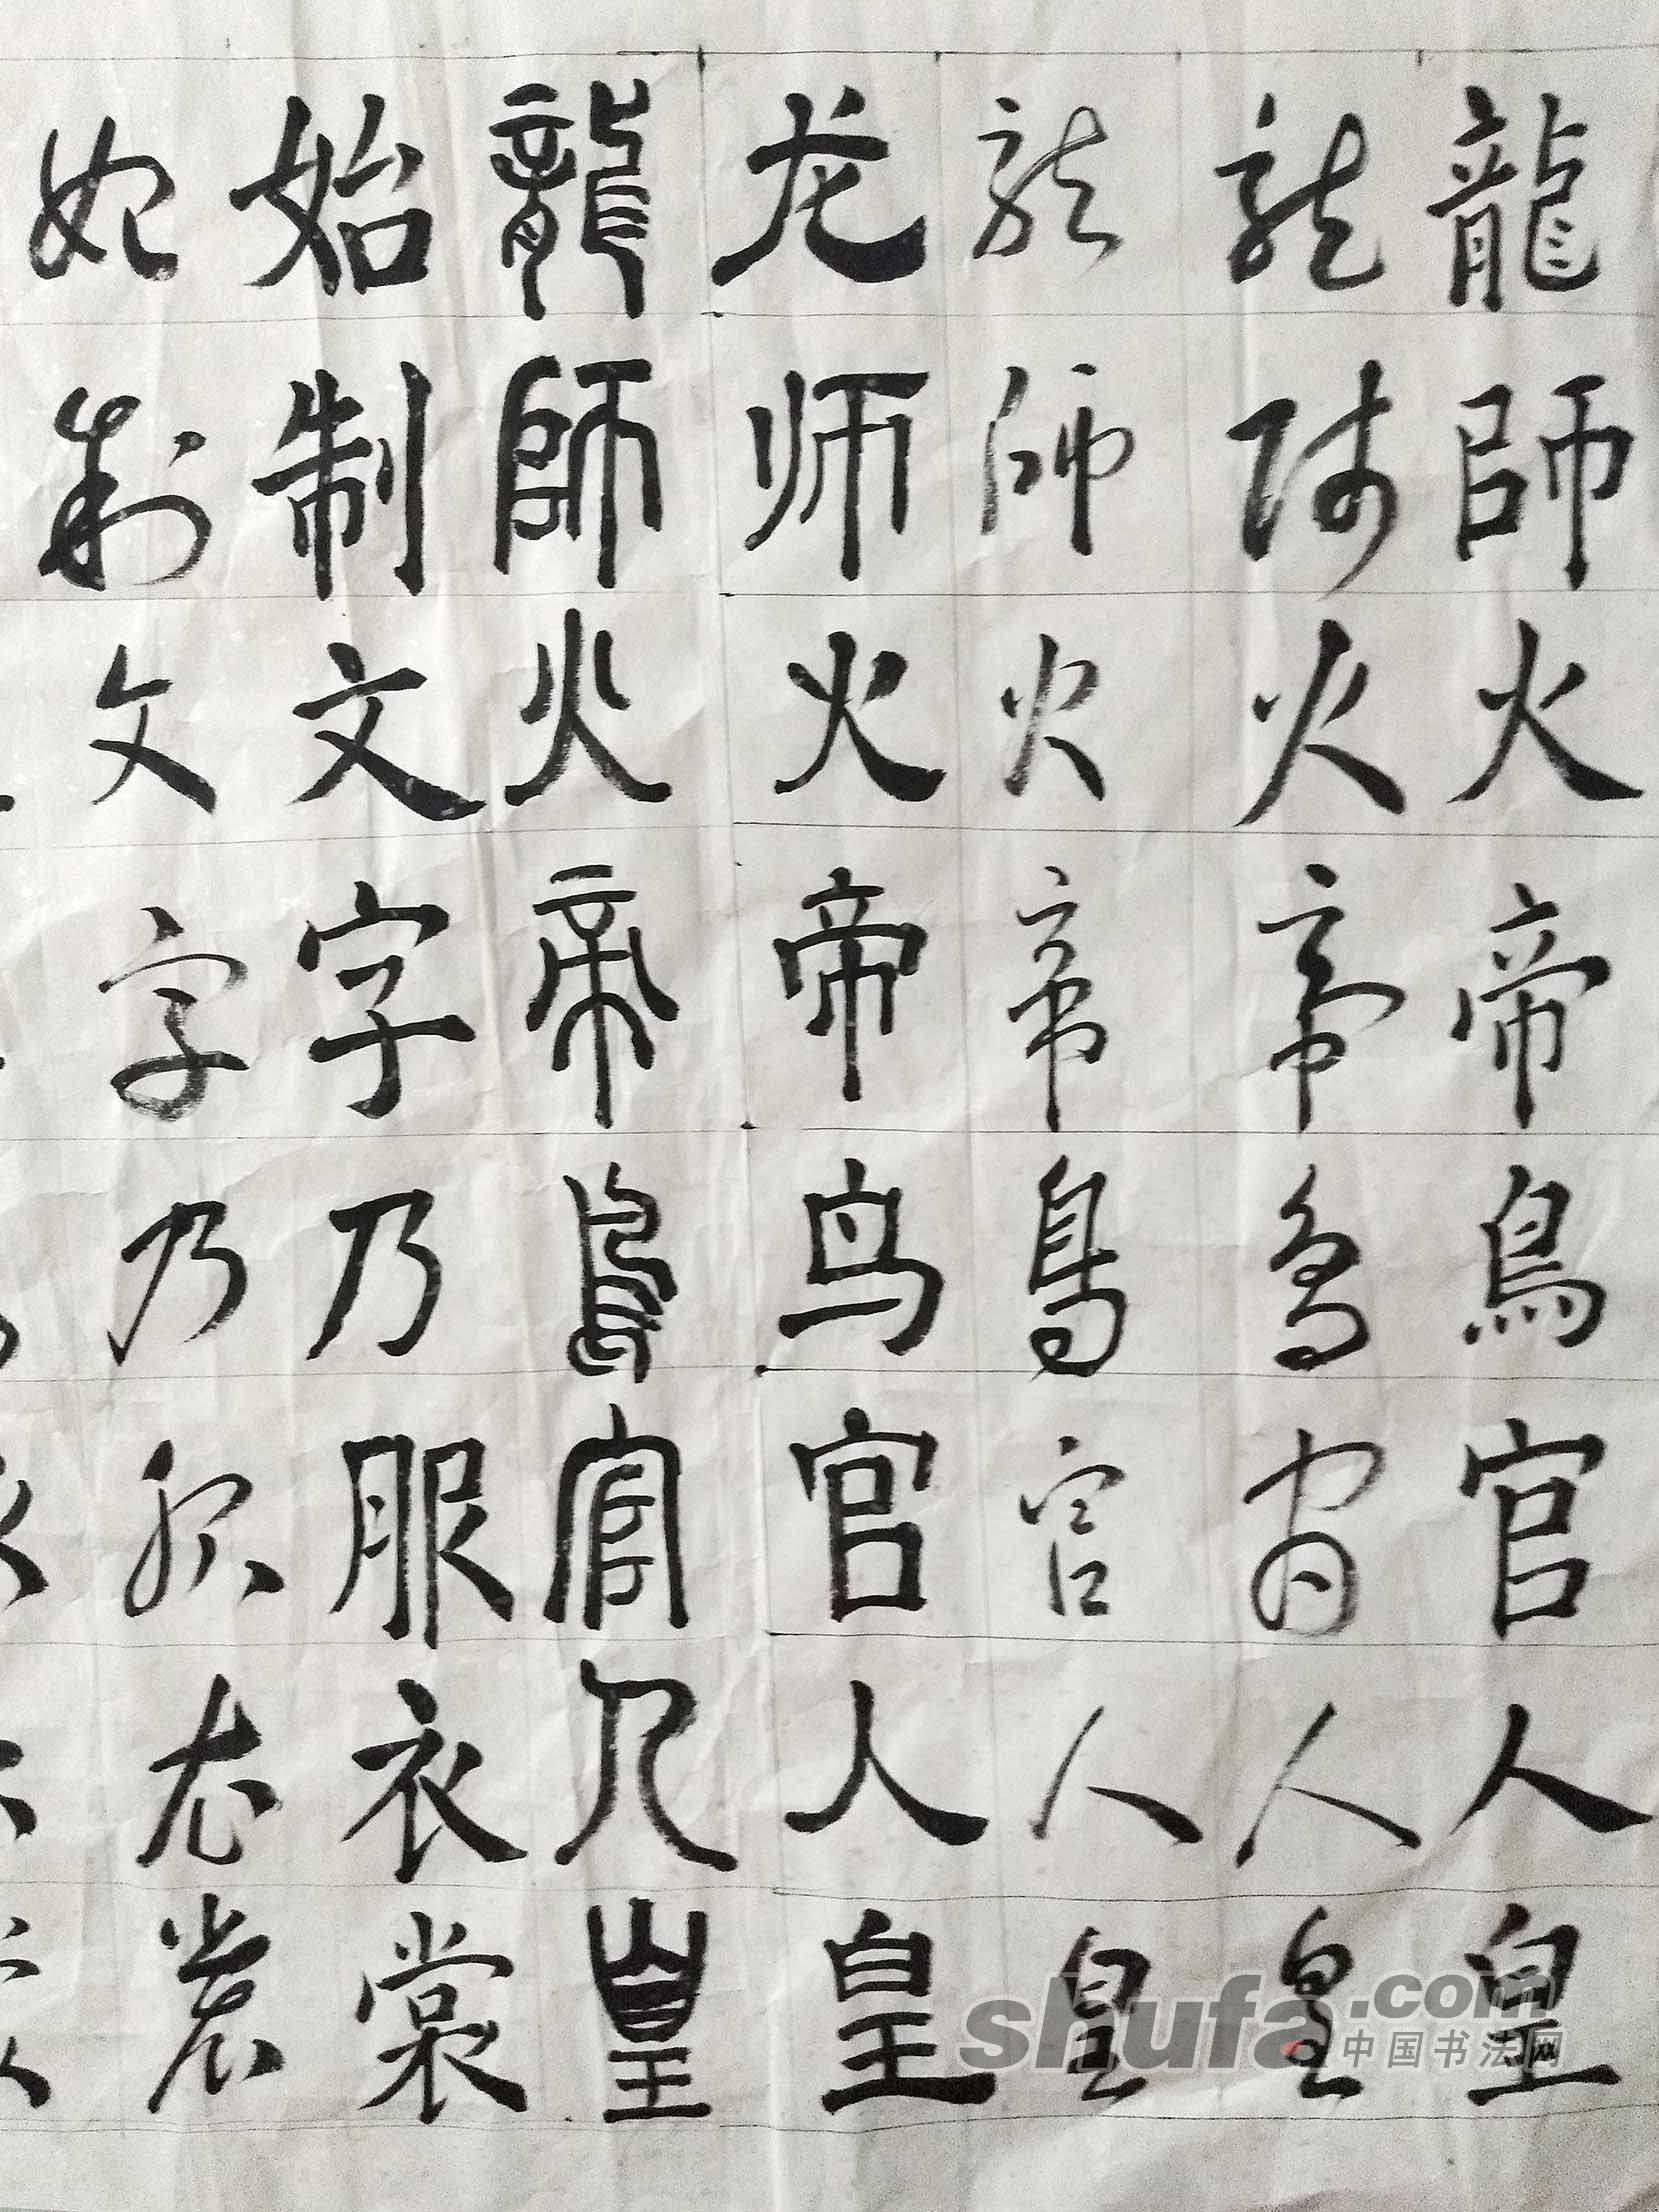 龍師火帝鳥官人皇
龍師火帝鳥官人皇
龍師火帝鳥官人皇
龙师火帝鸟官人皇
龍師火帝鳥官人皇
始制文字乃服衣裳
始制文字乃服衣裳
shufa.com
中国书法网